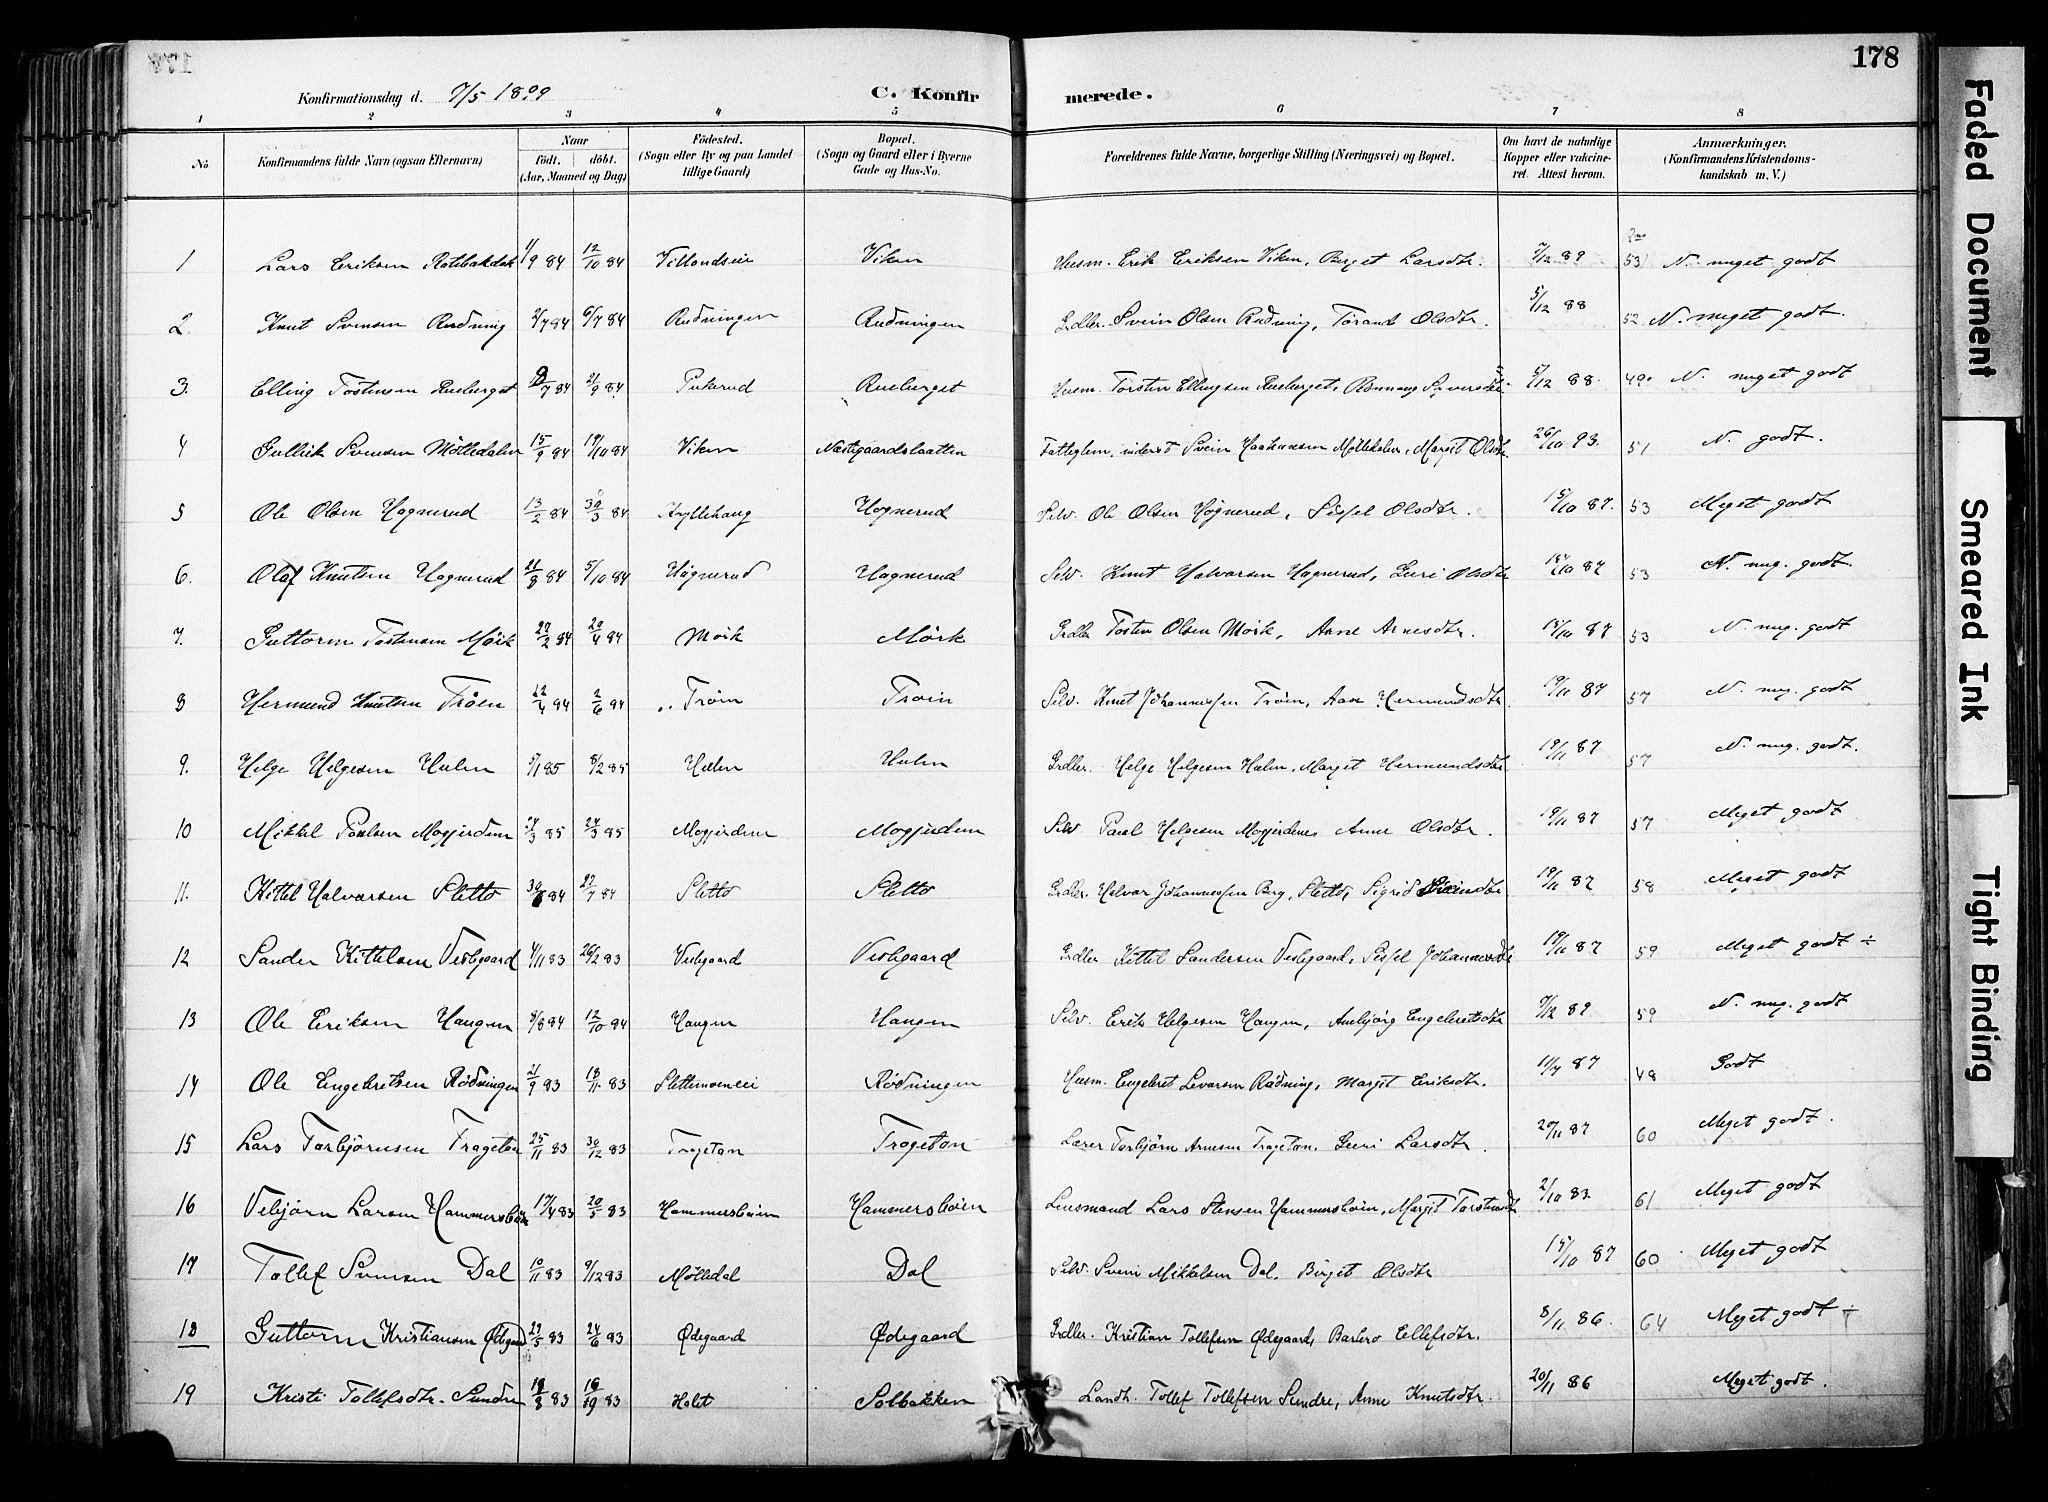 178
Konfirmationsdag d. 7/5 1899
C. Konfirmerede.
1 2 3 4 5 6 7 8
No. Konfirmandens fulde Navn (ogsaa Efternavn) Naar født. døbt. (Aar, Maaned og Dag) Födested. (Sogn eller By og paa Landet tillige Gaard) Bopæl. (Sogn og Gaard eller i Byerne Gade og Hus-No. Forældrenes fulde Navne, borgerlige Stilling (Næringsvei) og Bopæl. Om havt de naturlige Kopper eller vakcineret. Attest herom. Anmærkninger. (Konfirmandens Kristendomskundskab m. V.)
1 Lars Eriksen 1/9 84 12/10 84 Villandseie Viken Husm. Erik Eriksen Viken, Birget Larsdtr. 7/12 89 53 N. meget godt
2. Knut Svensen Rudning 2/7 84 6/7 84 Rudningen Rudningen Grdbr. Svein Olsen Rudning, Torand Olsdtr. 5/12 88 52 N. meget godt.
3. Elling Tostensen Rusberget /7 84 21/9 84 Pukerud Rusberget Husm. Torsten Ellingsen Rusberget, Rønnaug Syversdtr. 5/12 88. 49. N. meget godt
4 Gullik Svensen Mölledalen 15/9 84 19/10 84 Viken Næstegaardslaatten Fatteglem. inderst Svein Haakansen Mölledalen, Margit Olsdtr. 26/10 93. 51 N. godt.
5 Ole Olsen Hognerud 13/2 84 30/3 84 Hognerud Selv. Ole Olsen Høgnerud, Sissel Olsdtr. 15/10 87. 53 Meget godt
6. Olaf Knutsen Hagnerud 21/8 84 5/10 84 Högnerud Hagnerud Selv. Knut Halvorsen Hagnerud, Guri Olsdtr 15/10 87 53 N. meg. godt.
7. Guttorm Tostensen Mörk 27/2 84 20/4 84 Mörk Mörk Grdbr. Tosten Olsen Mörk, Anne Arnesdtr. 15/10 87 53 N. meg. godt
8 Hermund Knutsen Tröen 22/4 84 2/6 84 Tröin Troin Selv. Knut Johannessen Tröin, Aase Hermundsdtr. 19/11 87 57 N. meg. godt
9. Helge Helgesen Hulen 5/1 85 8/2 85 Hulen Hulen Grdbr. Helge Helgesen Hulen, Marget Hermundsdtr. 19/11 87 57 N. meg. godt.
10 Mikkel Paulsen Mogjerdene /3 85 /3 85 Mogjerdene Mogjerdene Selv Paul Helgesen Mogjerdenes Anne Olsdtr. 19/11 87 57 Meget godt
11. Kittel Halvorsen Sletto 30/ 84 27/7 84 Sletto Sletto Grdbr. Halvor Johannessen Berg, Sletto, Sigrid Sveinsdtr 19/11 87 58 Meget godt
12 Sander Kittelsen Veslegaard 4/11 83 26/12 83 Veslegaard Veslegaard Grdbr Kittel Sandersen Veslegaard, Sissel Johannesdtr 19/11 87 59 Meget godt ÷
13 Ole Eriksen Haugen 3/8 84 12/10 84 Haugen Haugen Selv. Erik Helgesen Haugen, Anebjörg Engebretsdtr 7/12 89 59 N. meg. godt
14 Ole Engebretsen Rödningen 21/9 83 18/11 83 Slettemoeneie Rödningen Husm. Engebret Levorsen Rødning, Margit Eriksdtr. 11/7 87 48 Godt
15 Lars Torbjörnsen Trageton 25/11 83 30/12 83 Trageton Trageton Lærer Torbjörn Arnesen Trageton. Guri Larsdtr. 20/11 87 60 Meget godt.
16 Vebjörn Larsen Hammersböin 17/4 83 20/5 83 Hammersböin Hammersböin Lensmand Lars Stensen Hammersböin, Margit Torstensdtr 2/10 83 61 Meget godt
17 Tollef Svensen Dal 10/11 83 9/12 83 Mölledal Dal Selv. Svein Mikkelsen Dal. Birget Olsdtr 15/10 87 60 Meget godt
18 Guttorm Kristiansen Ødegaard 29/5 83 24/6 83 Ødegaard Ødegaard Grdbr. Kristian Tollefsen Ødegaard, Barbro Ellefsdtr. 8/11 86. 64 Meget godt ÷
19 Kristi Tollefsdtr. Sundre 18/8 83 16/9 83 Holet Solbakken Landh. Tollef Tollefsen Sundre, Anne Knutsdtr. 20/11 86 Meget godt.
Faded Document
Smeared Ink
Tight Binding